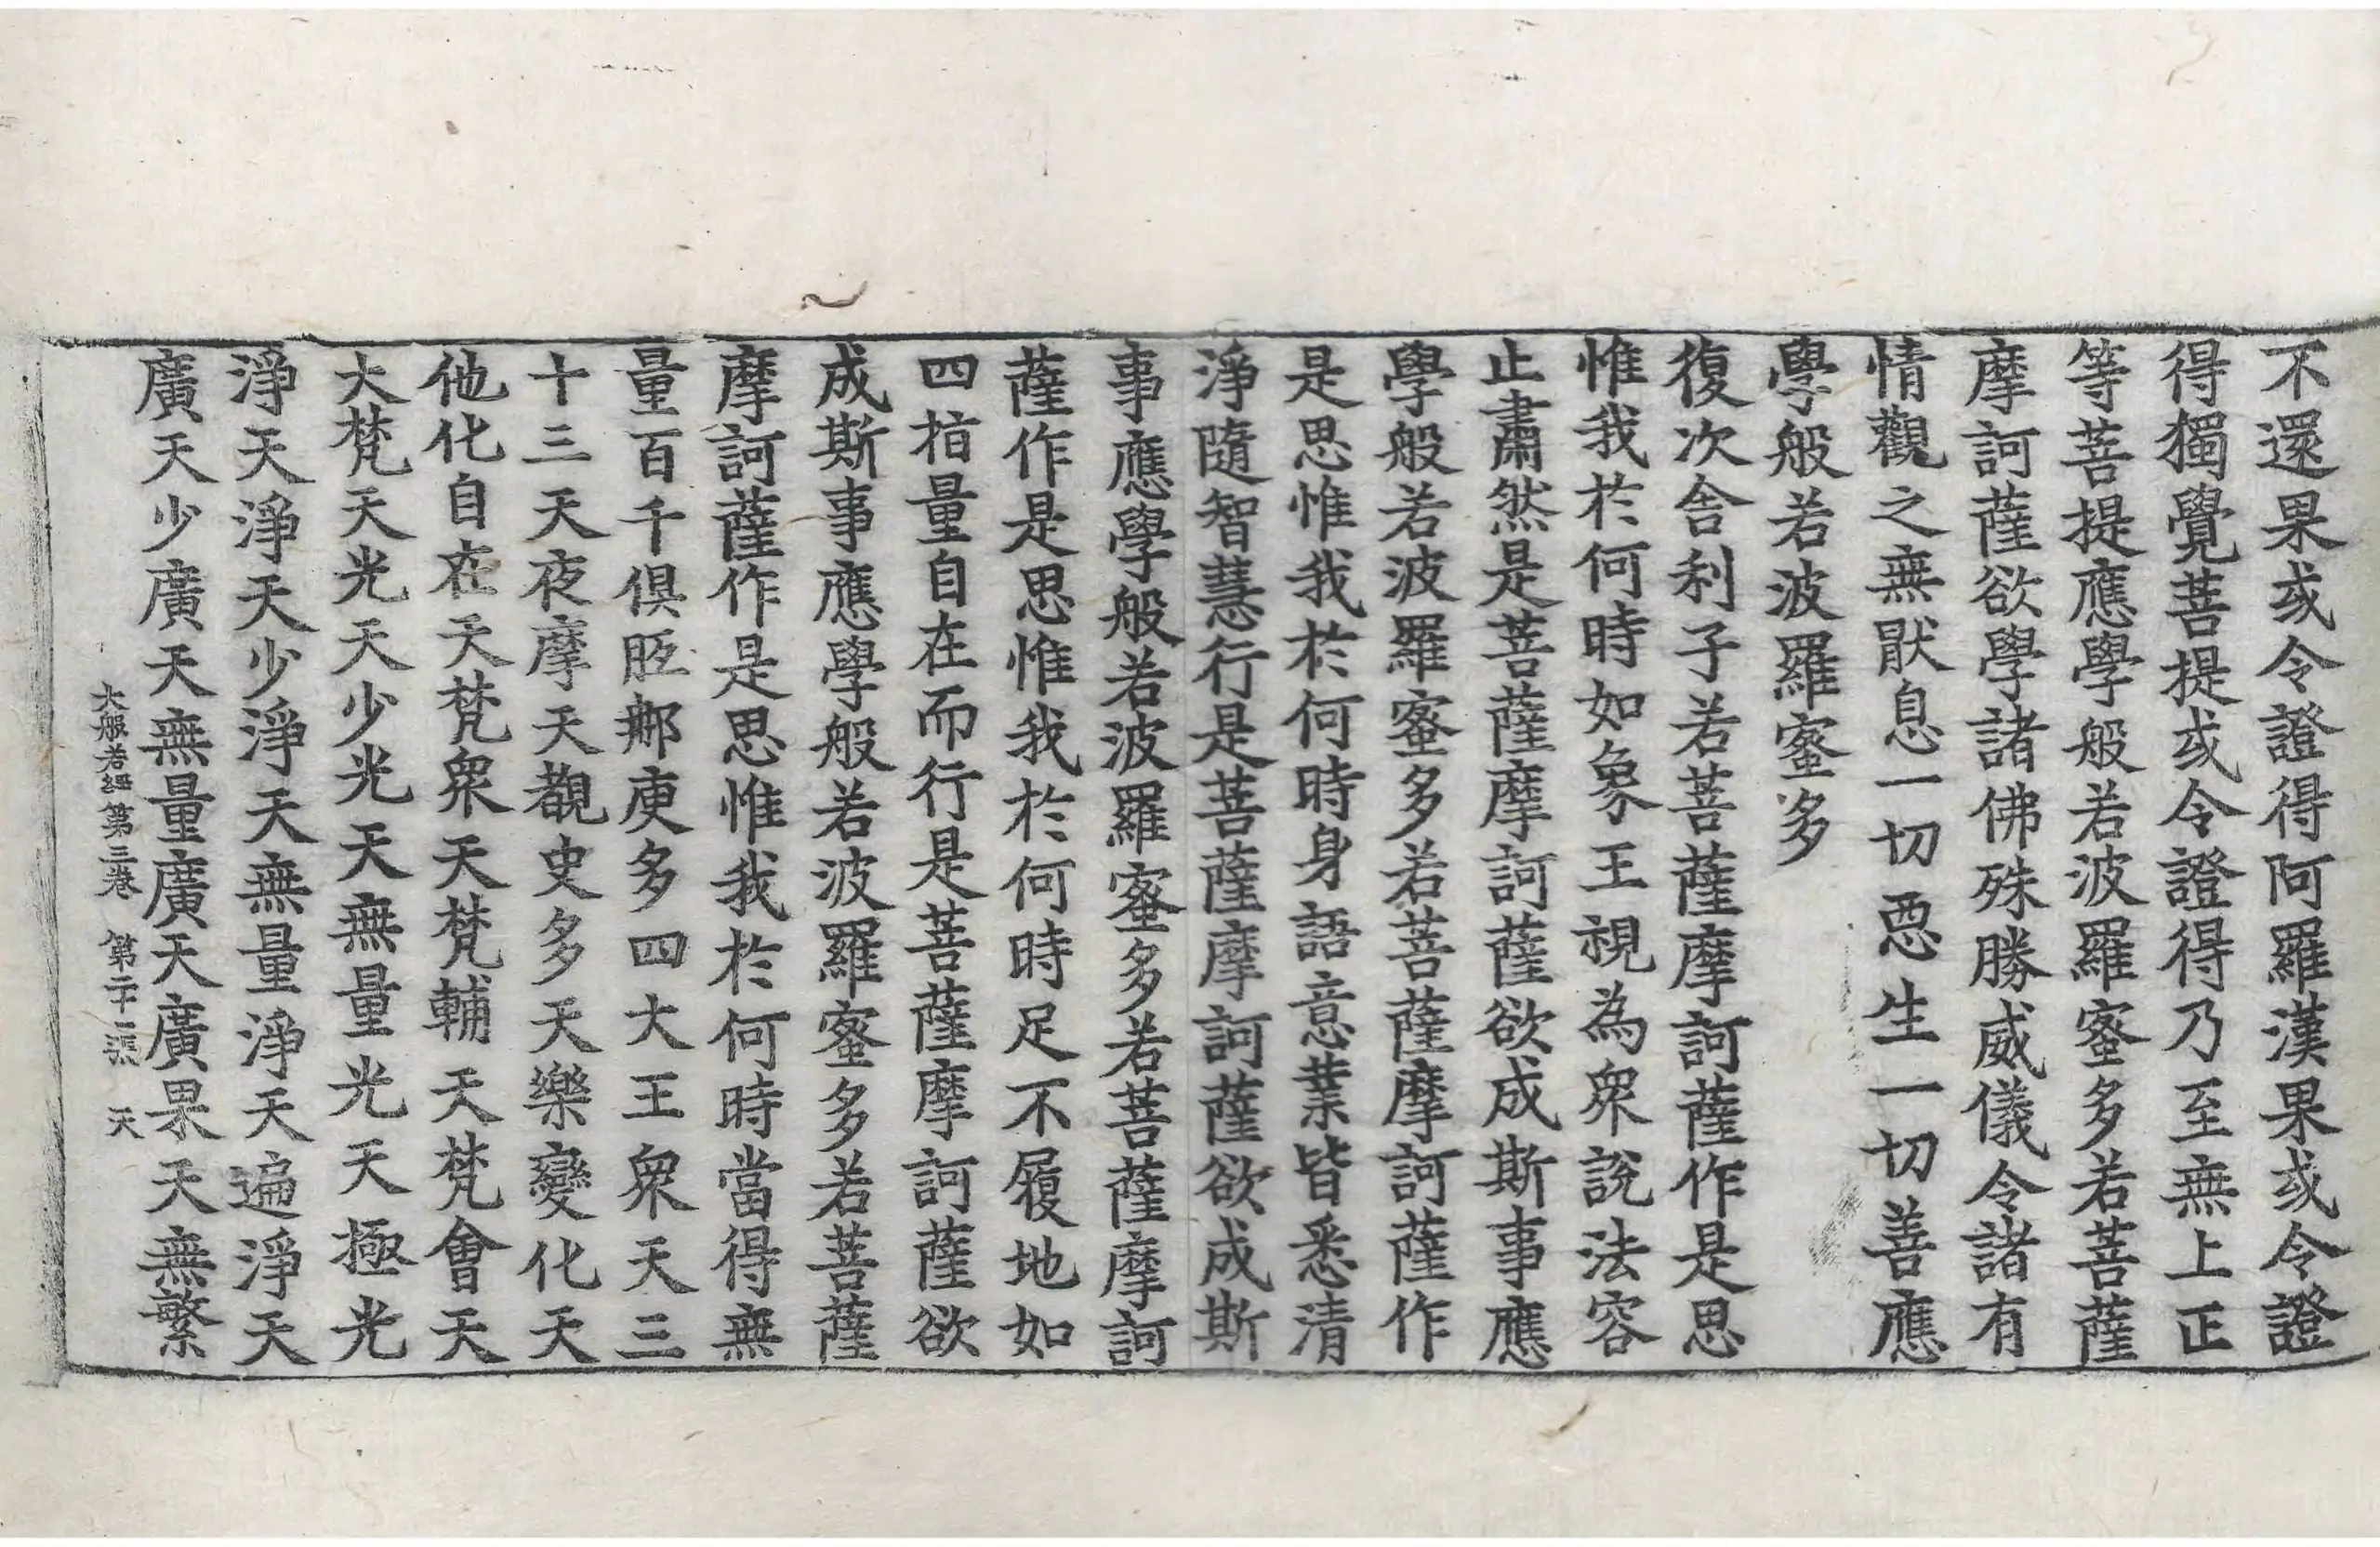 不還果或令證得阿羅漢果或令證
得獨覺菩提或令證得乃至無上正
等菩提應學般若波羅蜜多若菩薩
摩訶薩欲學諸佛殊勝威儀令諸有
情觀之無猒息一切惡生一切善應
學般若波羅蜜多
復次舍利子若菩薩摩訶薩作是思
惟我於何時如象王視為衆說法容
止肅然是菩薩摩訶薩欲成斯事應
學般若波羅蜜多若菩薩摩訶薩作
是思惟我於何時身語意業皆悉清
淨隨智慧行是菩薩摩訶薩欲成斯
事應學般若波羅蜜多若菩薩摩訶
薩作是思惟我於何時足不履地如
四指量自在而行是菩薩摩訶薩欲
成斯事應學般若波羅蜜多若菩薩
摩訶薩作是思惟我於何時當得無
量百千俱胝那庾多四大王衆天三
十三天夜摩天覩史多天樂變化天
他化自在天梵衆天梵輔天梵會天
大梵天光天少光天無量光天極光
淨天淨天少淨天無量淨天遍淨天
廣天少廣天無量廣天廣果天無繁
大般若經第三卷 第二十二張 天